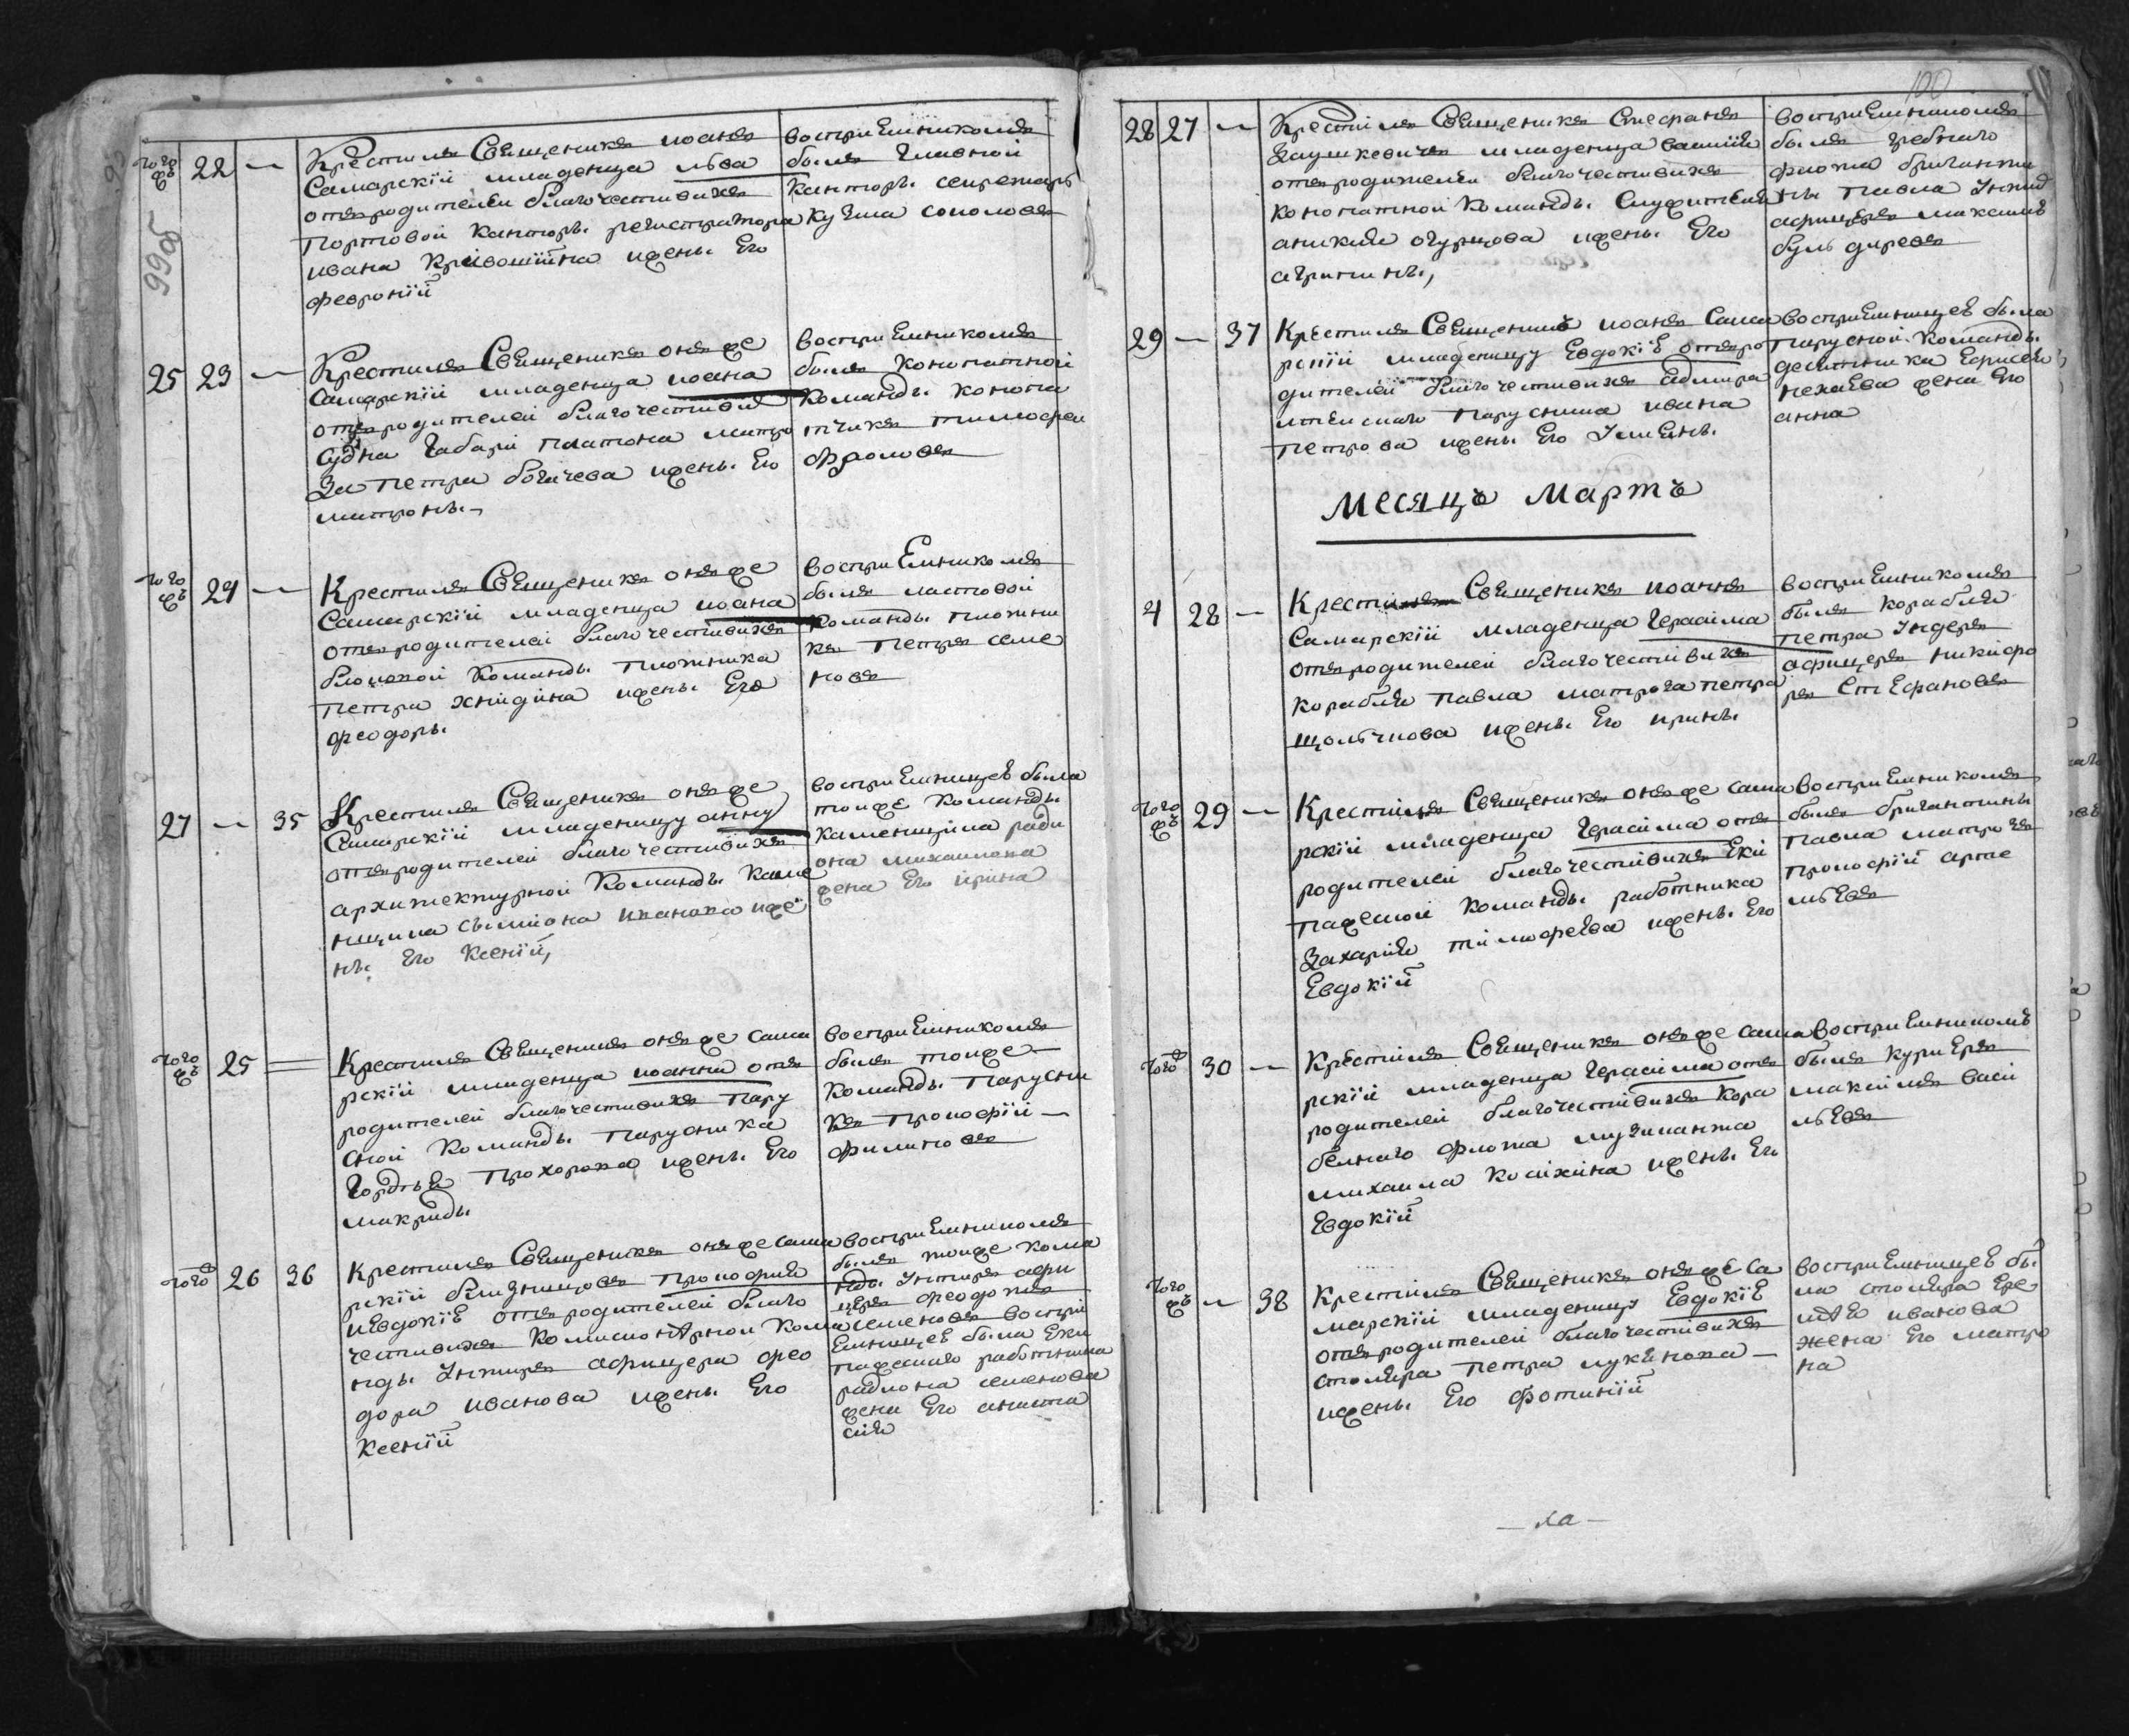 99об
того
жъ
22
Крестилъ Священикъ иоаннъ
Самарскїй младенца льва
отъ родителей благочестивыхъ
Портовой канторы регистратора
ивана кривошїйна ижены его
февронїй
восприемникомъ
былъ главной
канторы секретарь
кузма соколовъ
25
23
Крестилъ Священикъ онъ же
Самарскїй младенца иоана
отъ родителей благочестивых
судна габари платона матро
за петра богачева ижены его
матроны
восприемникомъ
былъ конопатной
команды конопа
тчикъ тимофеи
фроловъ
того
жъ
24
Крестилъ Священикъ онъ же
Самарскїй младенца иоана
отъ родителей благочестивыхъ
блоковой команды плотника
петра хнидина ижены его
феодоры
восприемникомъ
былъ ластовой
команды плотни
къ петръ семе
новъ
27
35
Крестилъ Священикъ онъ же
Самарскїй младеницу анну
отъ родителей благочестивыхъ
архитектурной команды каме
нщика сымиона иванова иже
ны его ксенїй
восприемницеѣ была
тойже команды
каменщика роди
она михаилова
жена его ирина
того
жъ
25
Крестилъ Священикъ онъ же сама
рскїй младенца иоанна отъ
родителей благочестивыхъ пару
сной команды парусника
гордѣя прохорова ижены его
макриды
восприемникомъ
былъ тойже
команды парусни
къ прокофїй
филиповъ
того
26
36
Крестилъ Священикъ онъ же сама
рскїй близнецовъ прокофия
иевдокїѣ отъ родителей благо
честивыхъ комисионѣрной кома
нды унтиръ афицера фео
дора иванова ижены его
ксенїй
восприемникомъ
былъ тойже кома
нды унтиръ афи
церъ феодотъ
семеновъ воспри
емницеѣ была еки
пажескаго работника
радиона семенова
жена его анаста
сия
100
28
27
Крестилъ Священикъ Стефанъ
младенца василия
отъ родителей благочестивыхъ
конопатной команды служителя
аникия огурцова ижены его
агрипины,
восприемникомъ
былъ гребнаго
флота бриганти
ны павла унтид
афицеръ максимъ
29
37
Крестилъ Священикъ иоанъ сама
рскїй младеницу евдокїѣ отъ ро
дителей благочестивыхъ адмира
лтейскаго парусника ивана
петрова ижены его улияны
восприемницеѣ была
парусной команды
десятника елисея
нехаева жена его
анна
Месяцъ Мартъ
4
28
Крестилъ Священикъ иоаннъ
Самарскїй младенца герасима
отъ родителей благочестивыхъ
корабля павла матроза петра
щолычкова ижены его ирины
восприемникомъ
былъ корабля
петра ундеръ
афицеръ никифо
ръ Стефановъ
того
жъ
29
Крестилъ Священикъ онъ же сама
рскїй младенца герасима отъ
родителей благочестивыхъ еки
пажеской команды работника
захария тимофеева ижены его
евдокїй
восприемникомъ
былъ бригантины
павла матрозъ
прокофїй арте
мьевъ
того
30
Крестилъ Священикъ онъ же сама
рскїй младенца герасима отъ
родителей благочестивыхъ кора
белнаго флота музиканта
михаила кошхина ижены его
евдокїй
восприемникомъ
былъ куриеръ
максимъ васи
льевъ
того
жъ
38
Крестилъ Священикъ онъ же са
марскїй младеницу евдокїѣ
отъ родителей благочестивыхъ
столяра петра лукянова
ижены его фотинїй
восприемницеѣ бы
ла столяра ере
мѣя иванова
жена его матро
на